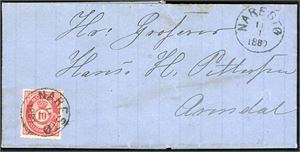 Hr. Grosserer
NARESTØ
1880
Hans H. Pettersen
Arendal
10
NARESTØ